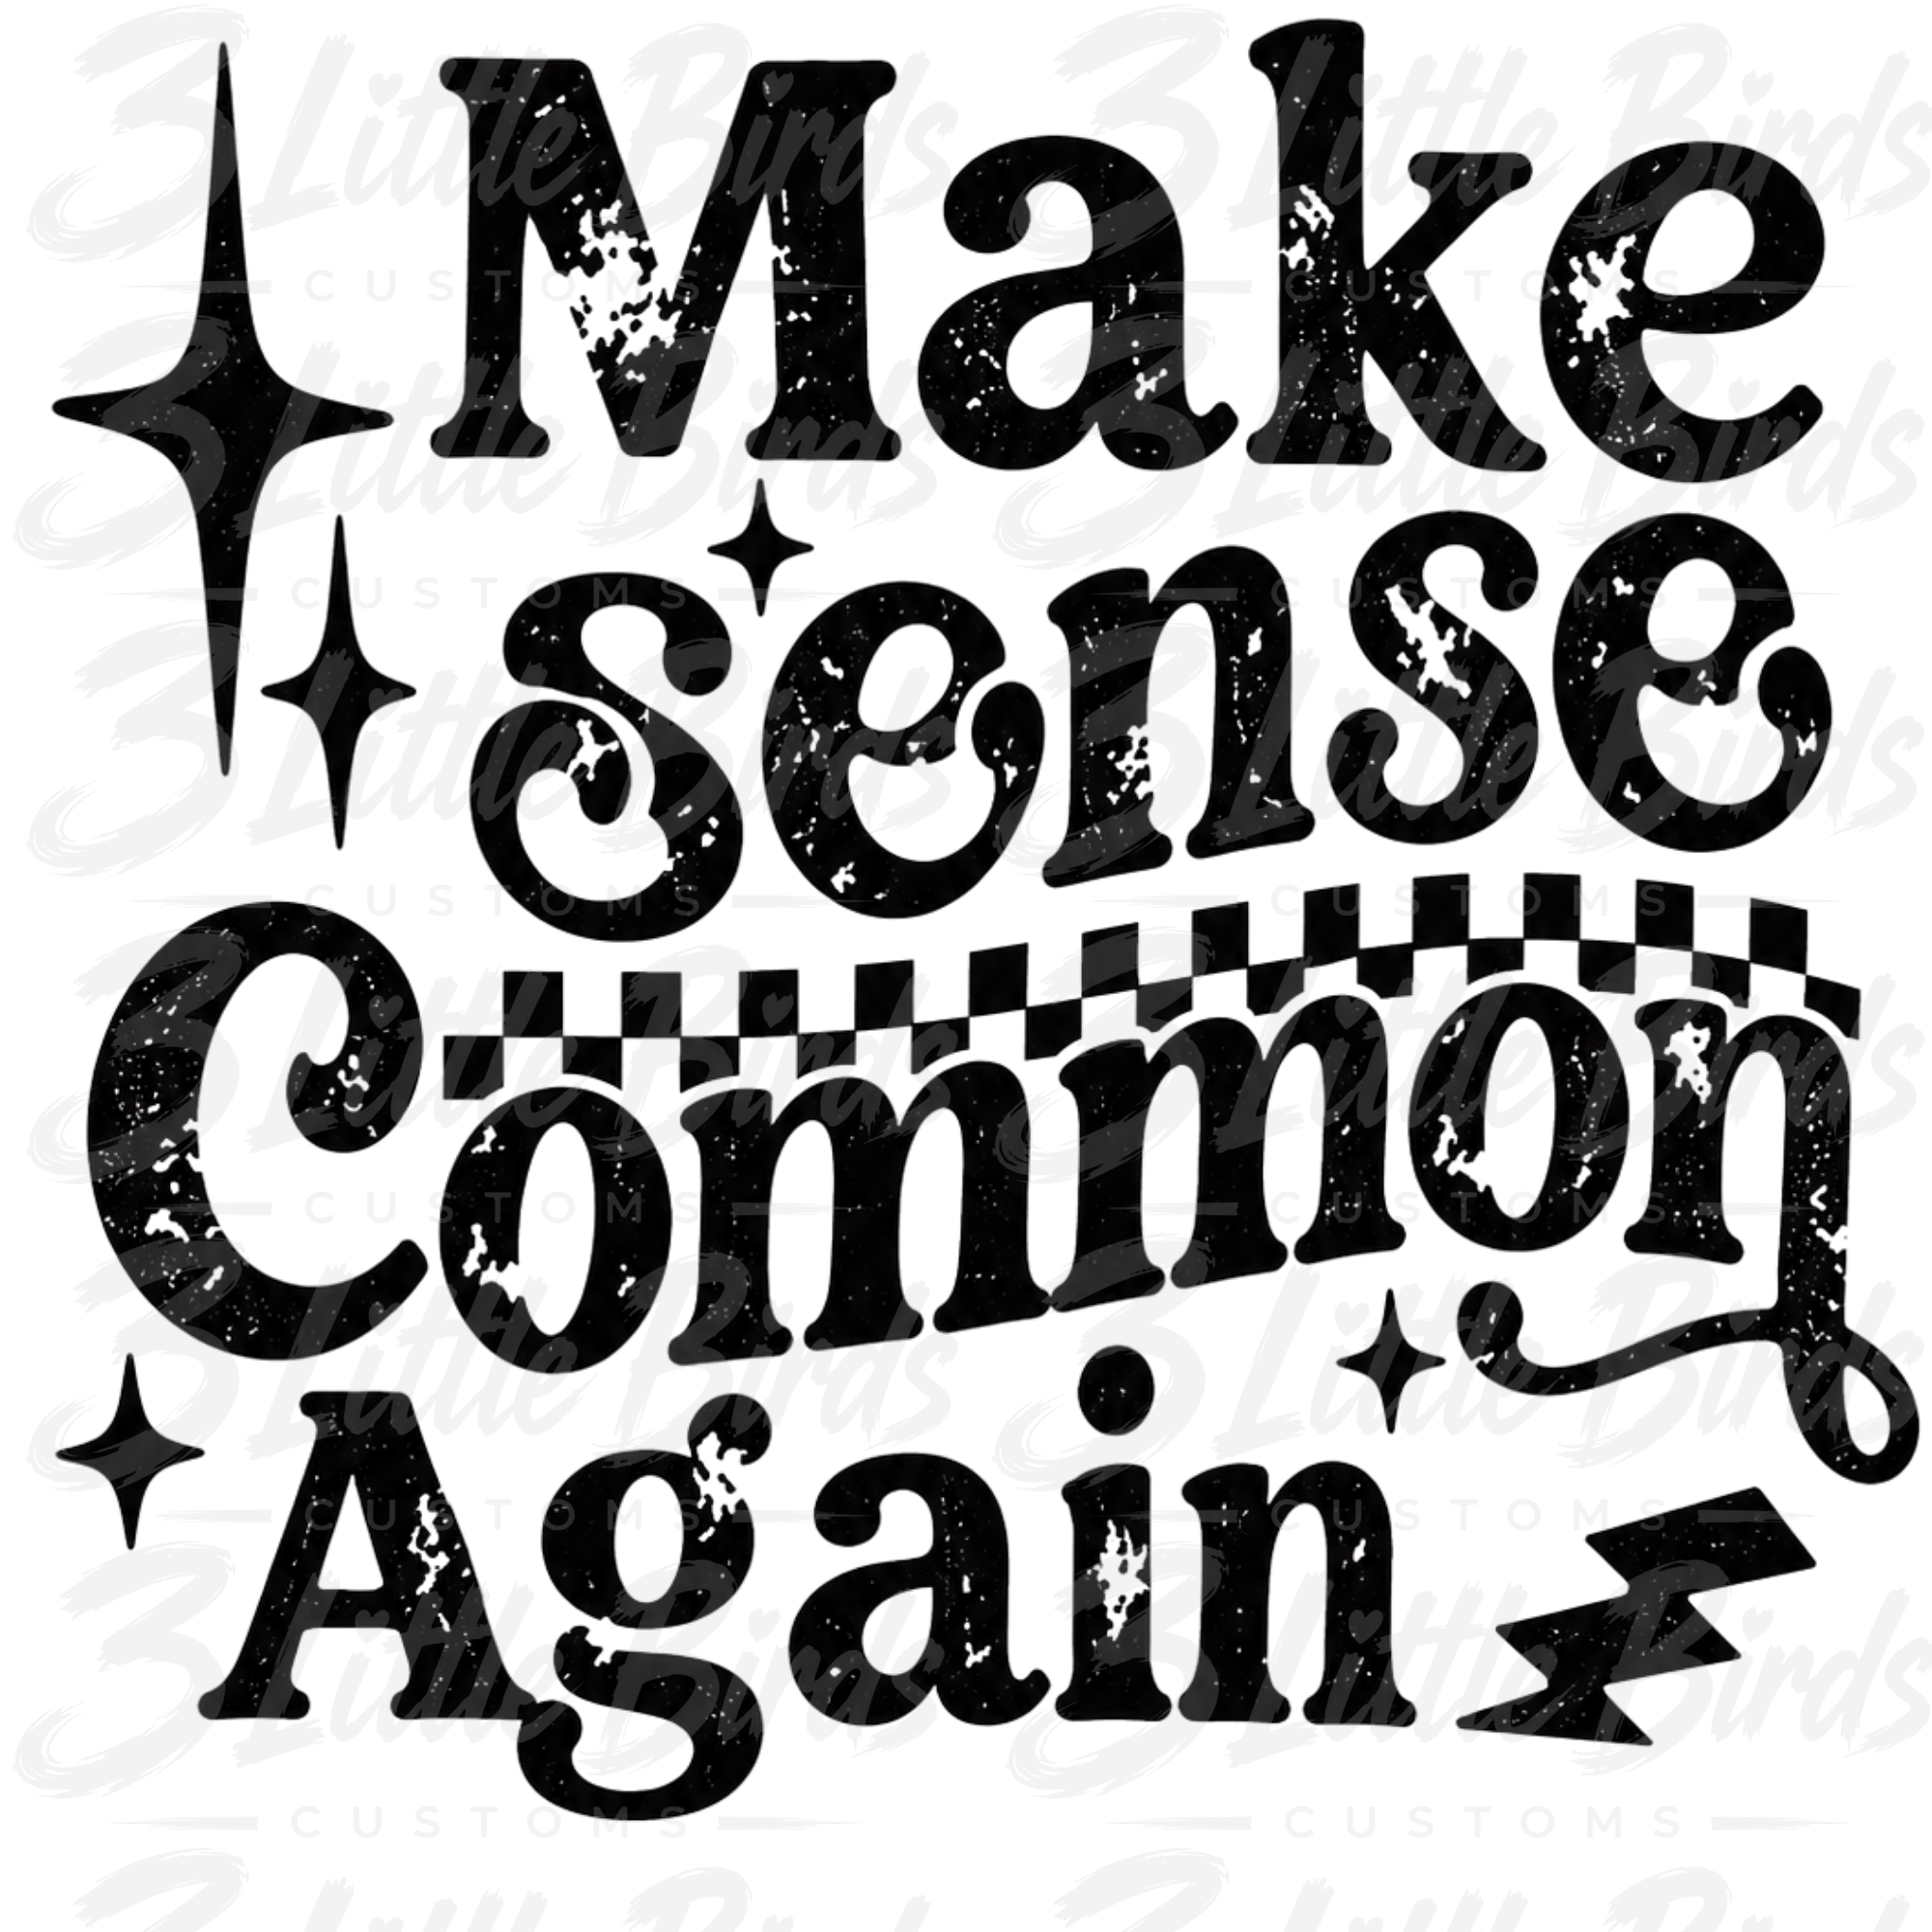 Make
sense
Common
Again
3 Little Birds
CUSTOMS